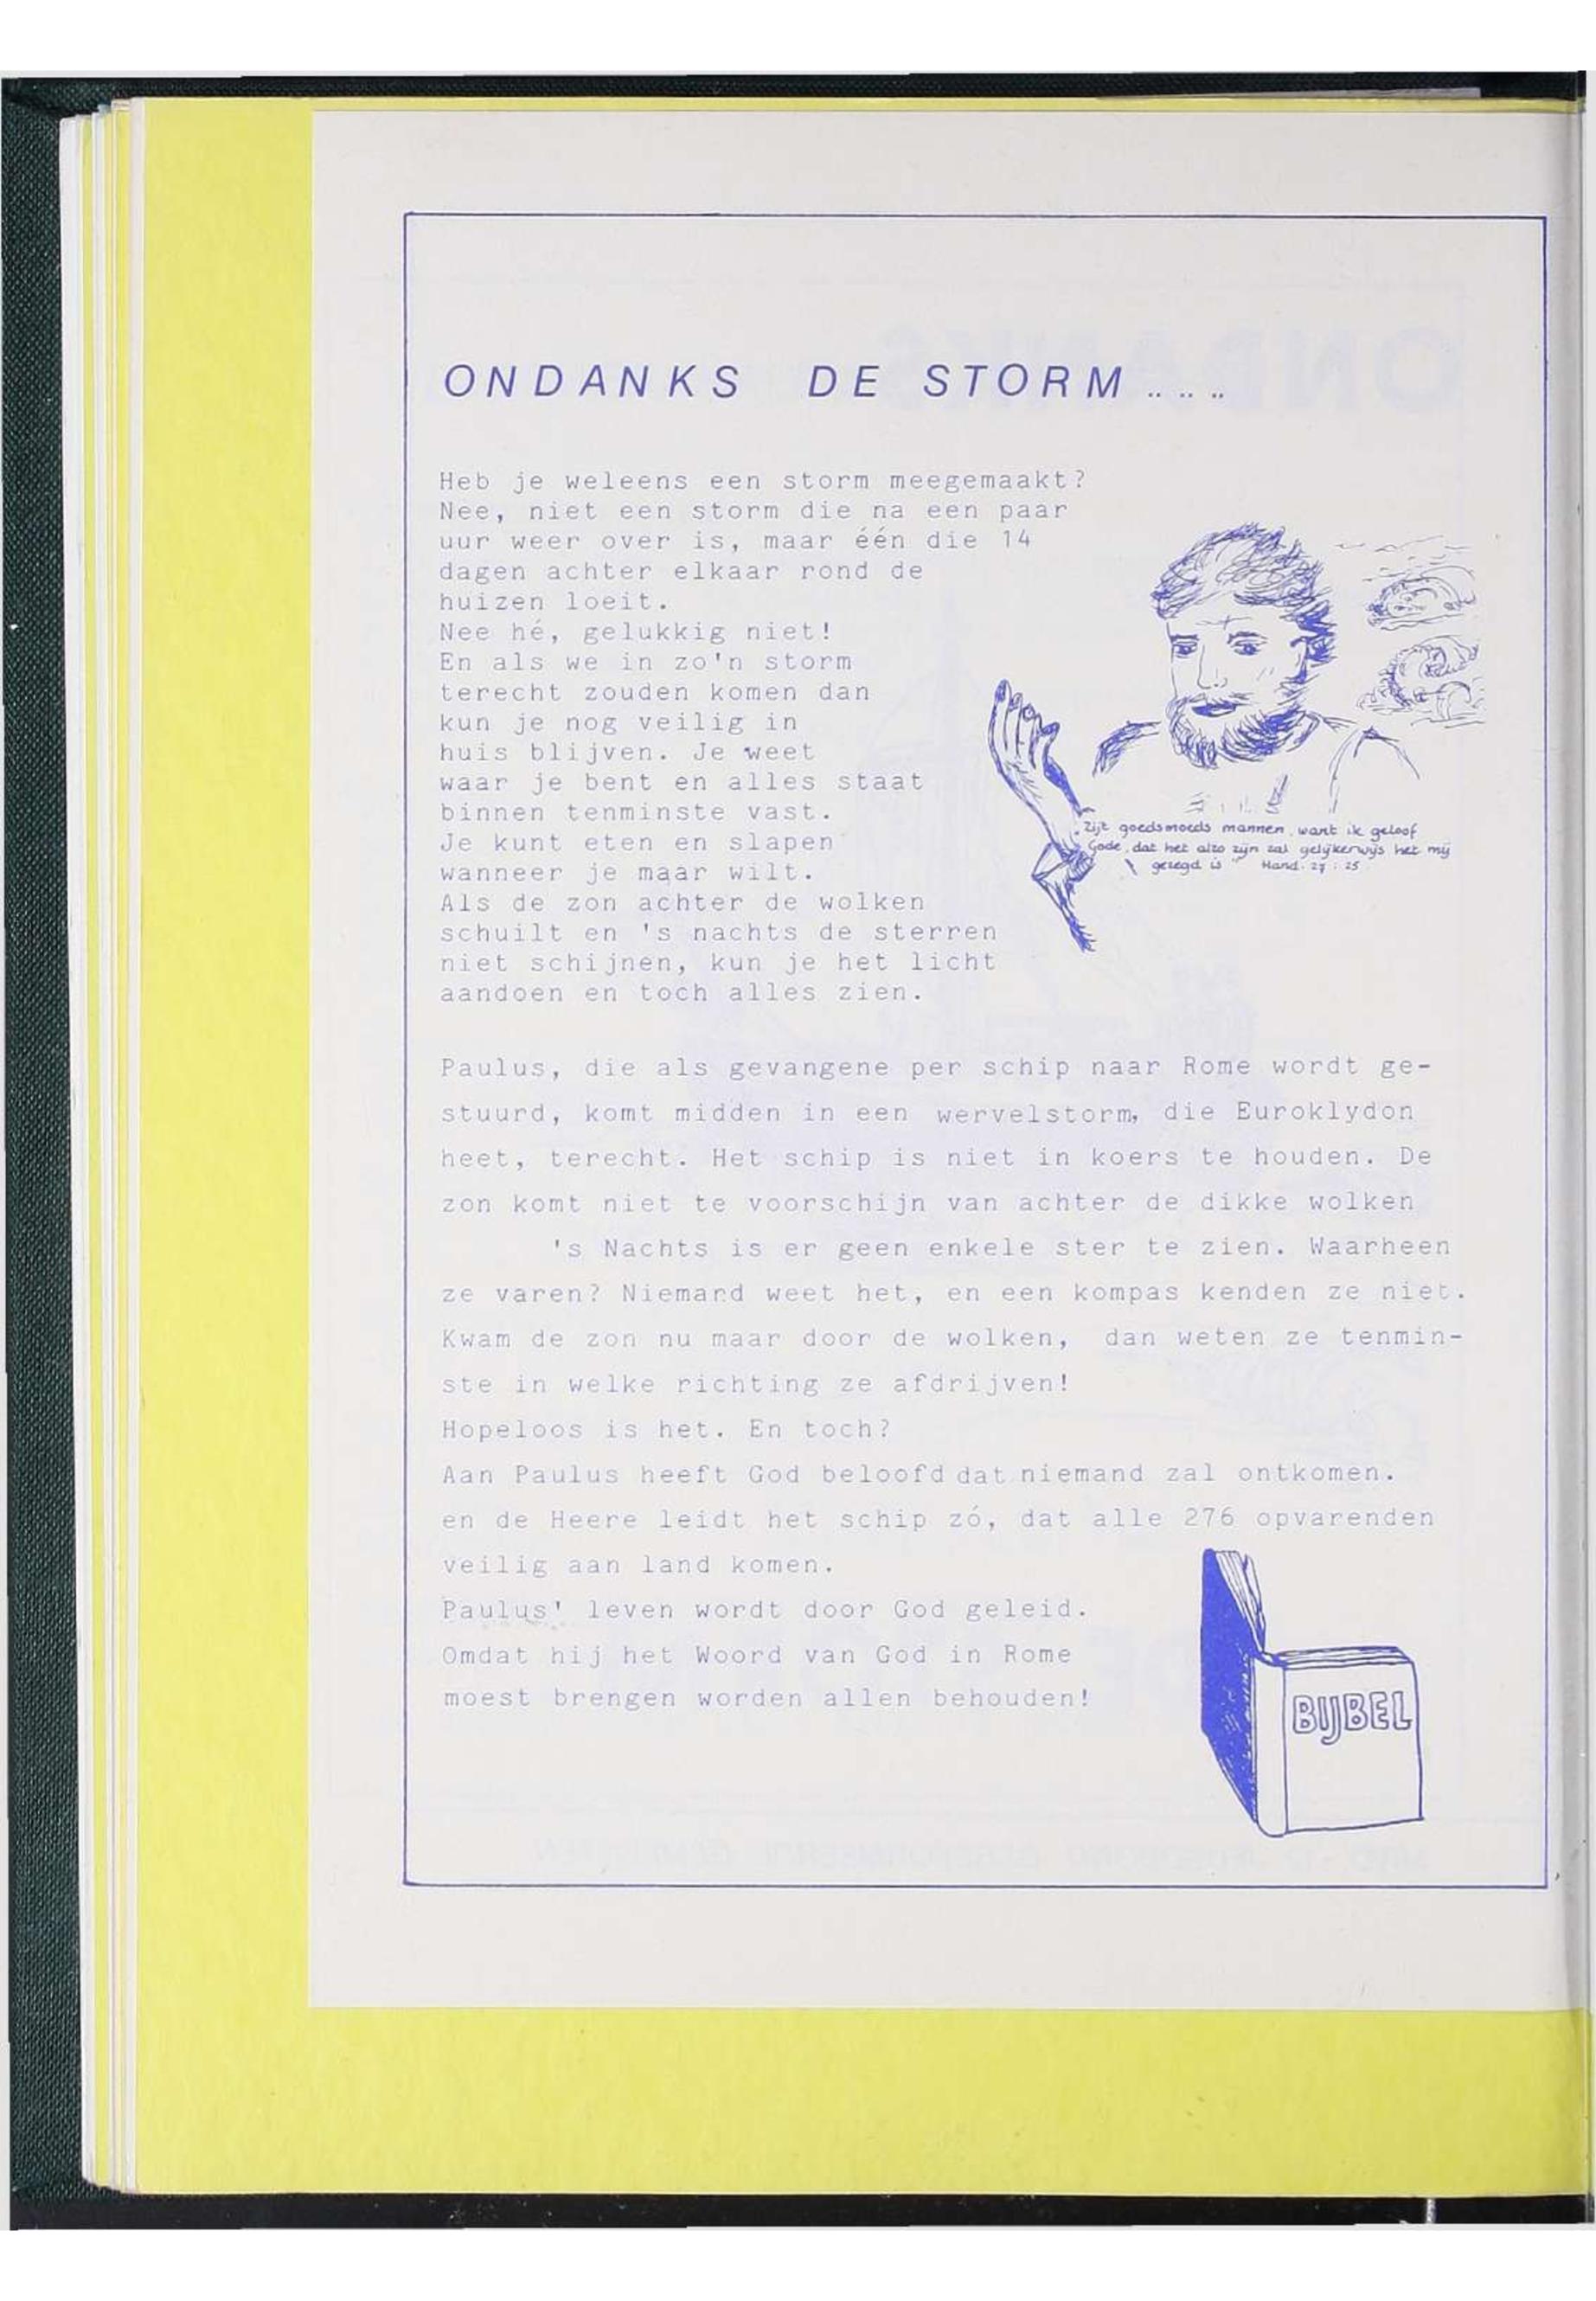 ONDANKS DE STORM .. .. ..
Heb je weleens een storm meegemaakt?
Nee, niet een storm die na een paar
uur weer over is, maar één die 14
dagen achter elkaar rond de
huizen loeit.
Nee hé, gelukkig niet!
En als we in zo'n storm
terecht zouden komen dan
kun je nog veilig in
huis blijven. Je weet
waar je bent en alles staat
binnen tenminste vast.
Je kunt eten en slapen
wanneer je maar wilt.
Als de zon achter de wolken
schuilt en 's nachts de sterren
niet schijnen, kun je het licht
aandoen en toch alles zien.
Zijt goedsmoeds mannen, want ik geloof
Gode, dat het alzo zijn zal gelijkerwijs het mij
gezegd is " Hand. 27 : 25
Paulus, die als gevangene per schip naar Rome wordt ge-
stuurd, komt midden in een wervelstorm, die Euroklydon
heet, terecht. Het schip is niet in koers te houden. De
zon komt niet te voorschijn van achter de dikke wolken
's Nachts is er geen enkele ster te zien. Waarheen
ze varen? Niemand weet het, en een kompas kenden ze niet.
Kwam de zon nu maar door de wolken, dan weten ze tenmin-
ste in welke richting ze afdrijven!
Hopeloos is het. En toch?
Aan Paulus heeft God beloofd dat niemand zal ontkomen.
en de Heere leidt het schip zó, dat alle 276 opvarenden
veilig aan land komen.
Paulus' leven wordt door God geleid.
Omdat hij het Woord van God in Rome
moest brengen worden allen behouden!
BIJBEL